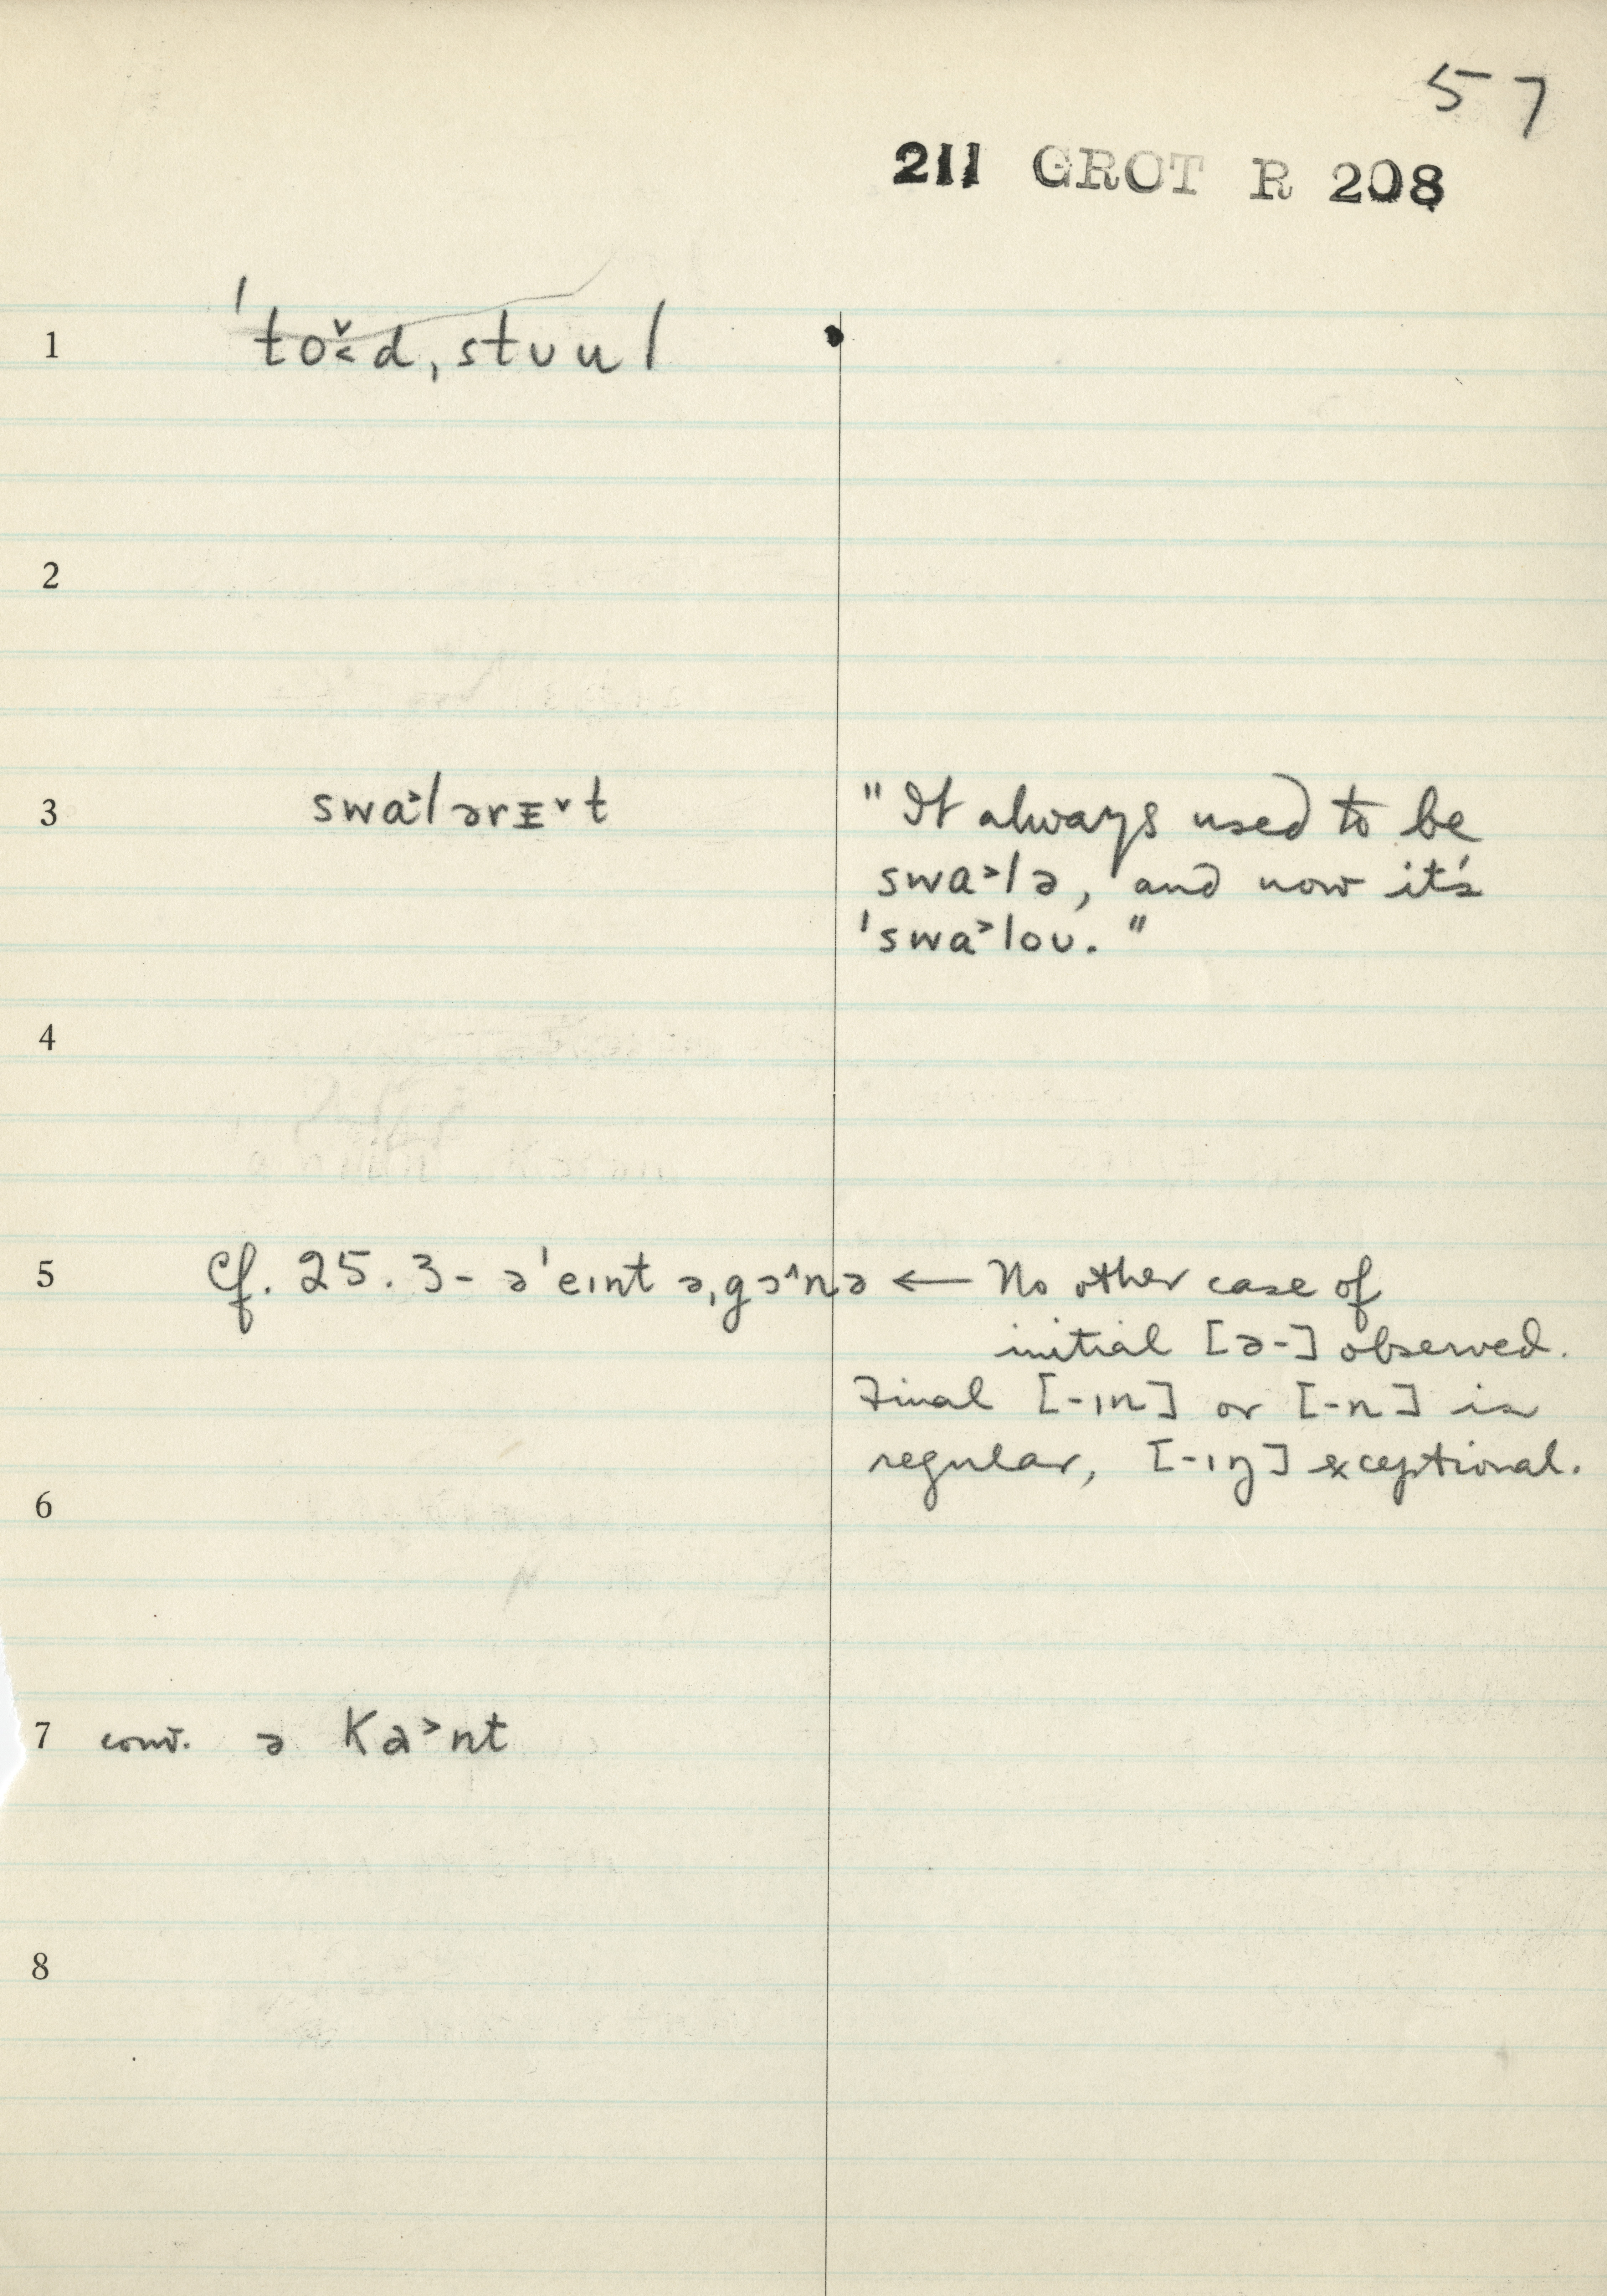 57
211 GROT R 208
1 ˈto̬˂d,stuul
2
3 swa˃lərɪ˅t "It always used to be
swa˃lə, and now it's
ˈswa˃loʊ."
4
5 Cf. 25.3- əˈeɪnt ə,gɔ˄nə ← No other case of
initial [ə-] observed.
Final [-ɪn] or [-n] is
regular, [-ɪŋ] exceptional.
6
7 conv. ə Ka˃nt
8